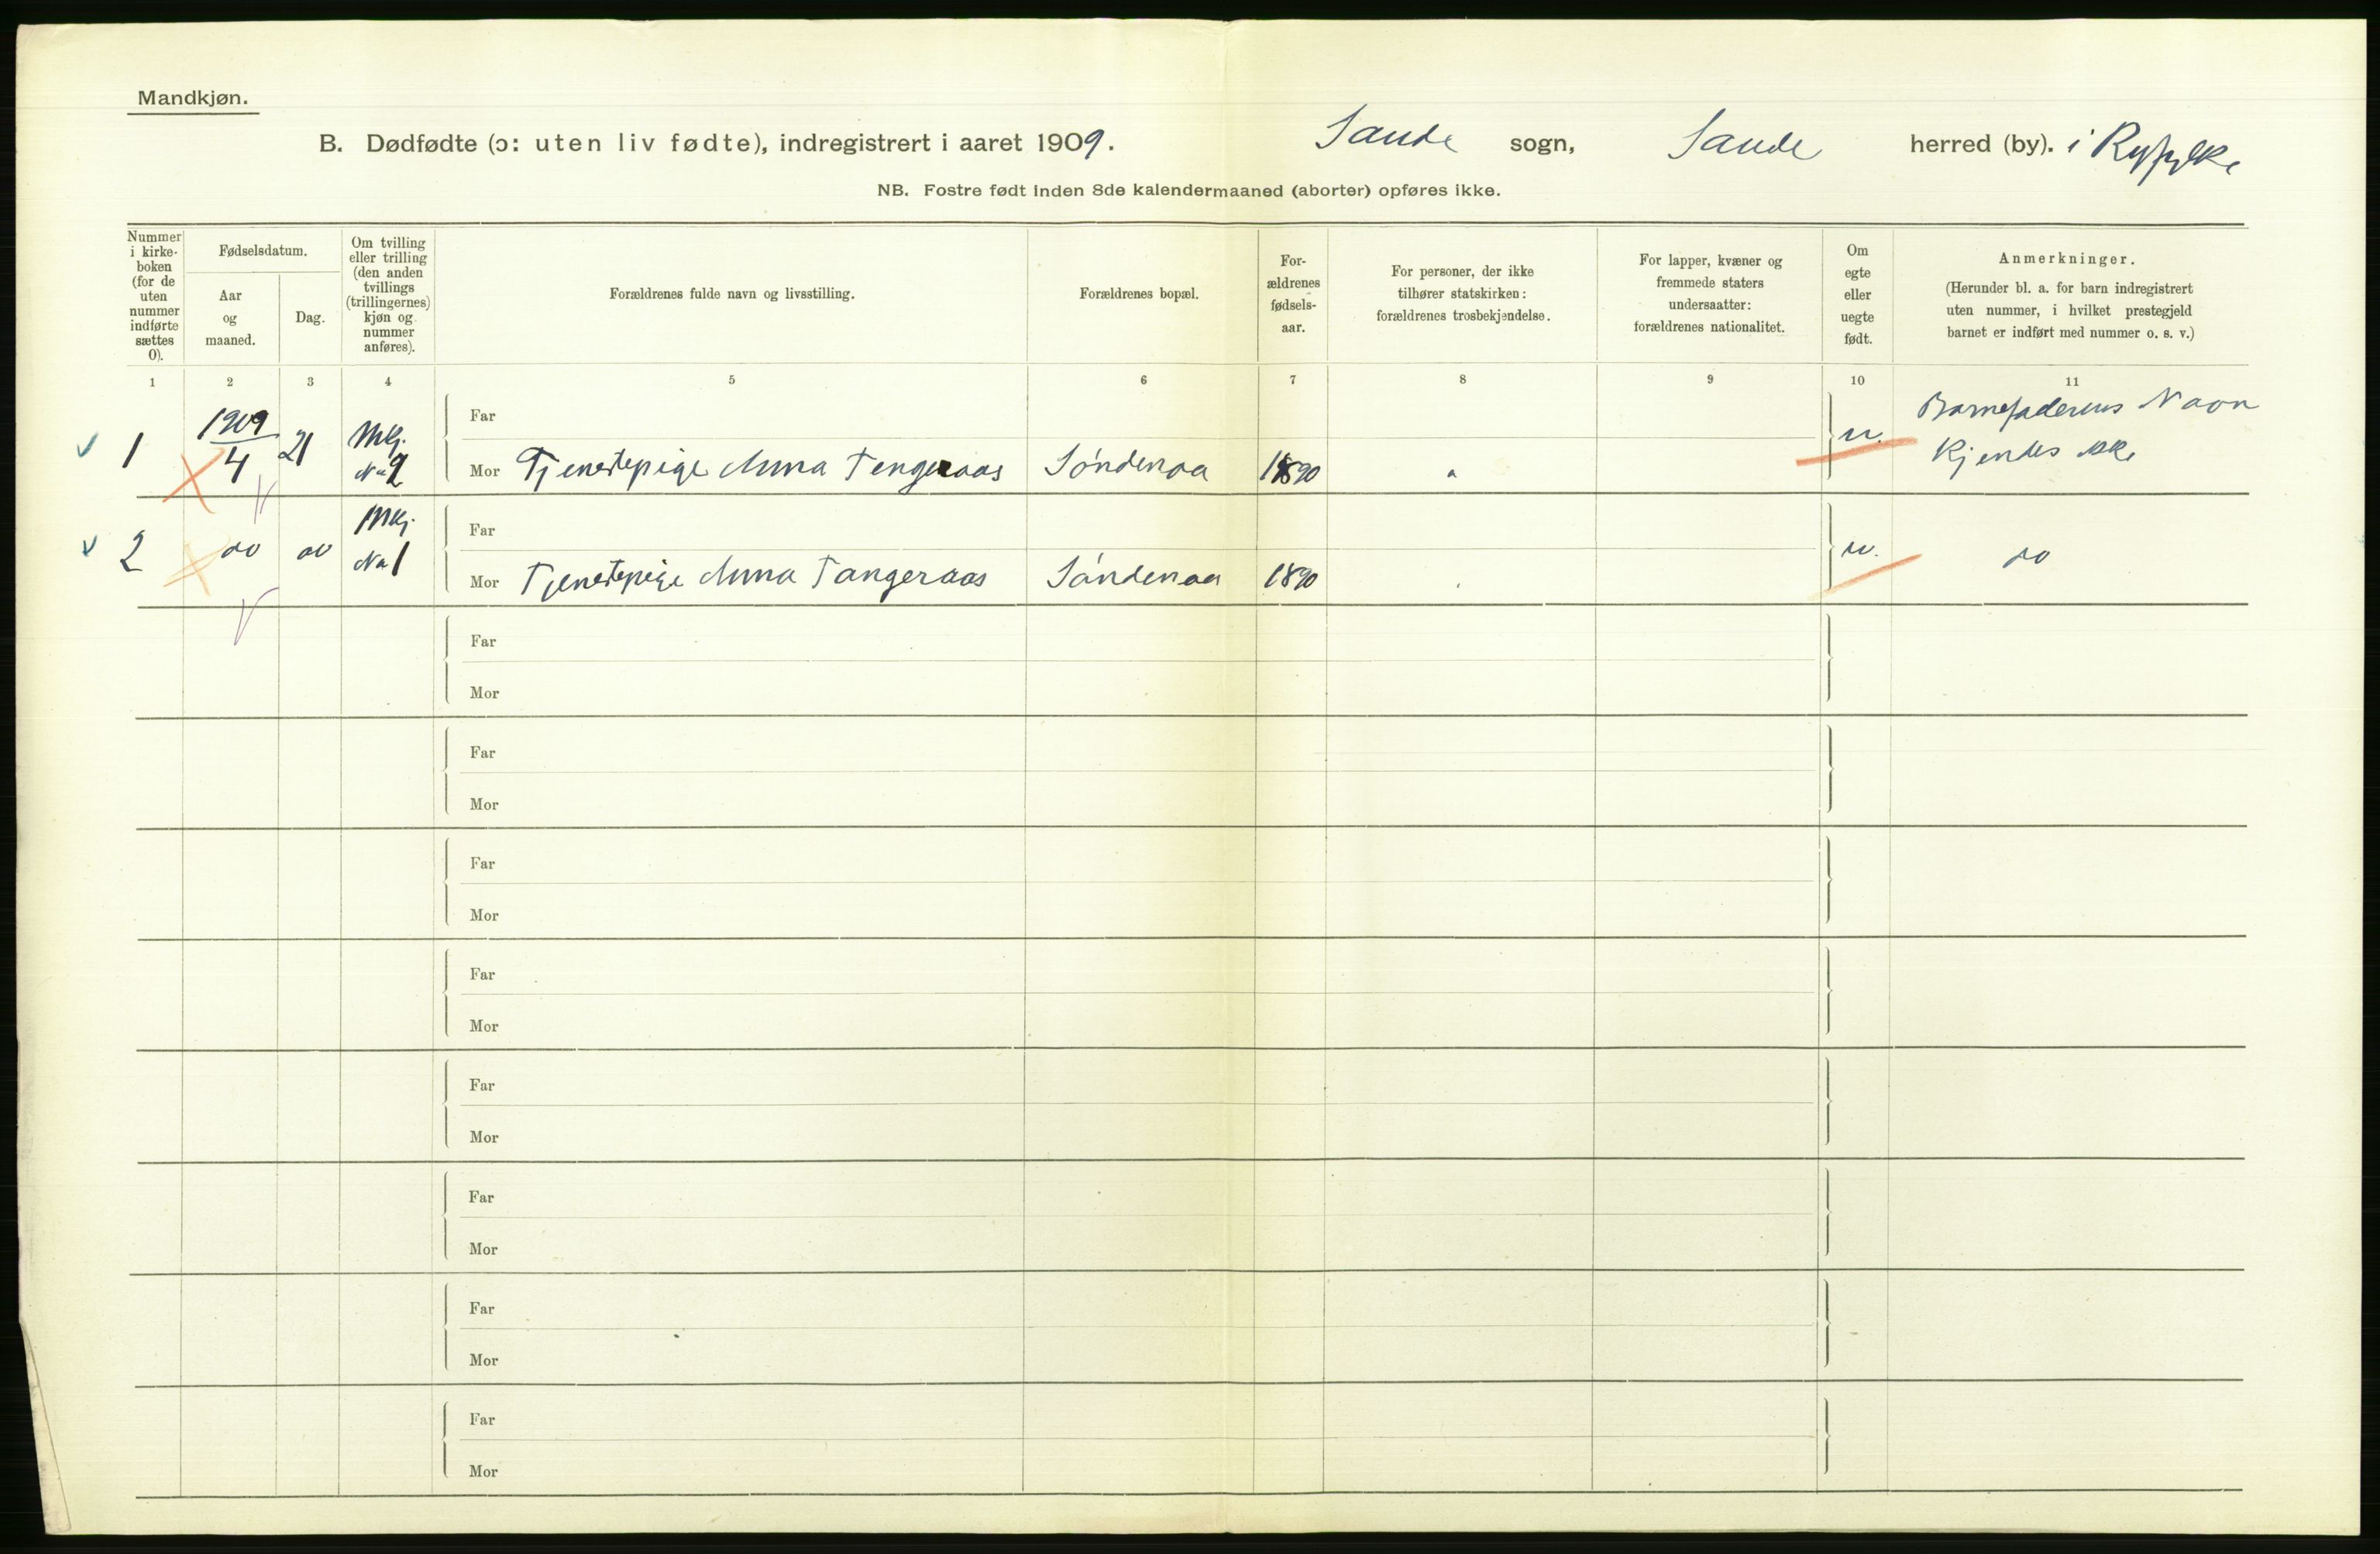 Mandkjøn.
B. Dødfødte (ɔ: uten liv fødte), indregistrert i aaret 1909. Saude sogn, Saude herred (by). i Ryfylke
NB. Fostre født inden 8de kalendermaaned (aborter) opføres ikke.
Nummer
i kirke-
boken
(for de
uten
nummer
indførte
sættes
0).
Fødselsdatum.
Aar
og
maaned.
Dag.
Om tvilling
eller trilling
(den anden
tvillings
(trillingernes)
kjøn og
nummer
anføres).
Forældrenes fulde navn og livsstilling.
Forældrenes bopæl.
For-
ældrenes
fødsels-
aar.
For personer, der ikke
tilhører statskirken:
forældrenes trosbekjendelse.
For lapper, kvæner og
fremmede staters
undersaatter:
forældrenes nationalitet.
Om
egte
eller
uegte
født.
Anmerkninger.
(Herunder bl. a. for barn indregistrert
uten nummer, i hvilket prestegjeld
barnet er indført med nummer o. s. v.)
1 2 3 4 5 6 7 8 9 10 11
1 1909/4 21 Mkj. No 2
Far
Mor Tjenestepige Anna Tengeraas Søndenaa 1890 u. Barnefaderens Navn
kjendes ikke
2 do do Mkj. No 1
Far
Mor Tjenestepige Anna Tangeraas Søndenaa 1890 u. do
Far
Mor
Far
Mor
Far
Mor
Far
Mor
Far
Mor
Far
Mor
Far
Mor
Far
Mor